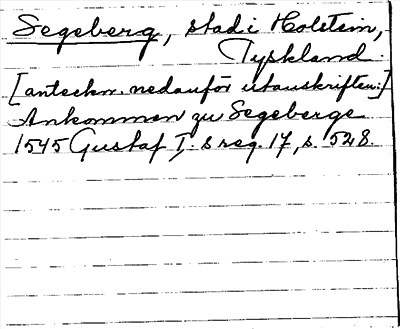 Segeberg, stad i Holstein,
Tyskland.
[anteckn. nedanför utanskriften:]
Ankommen zu Segeberge
1545 Gustaf I:s reg. 17, s. 528.